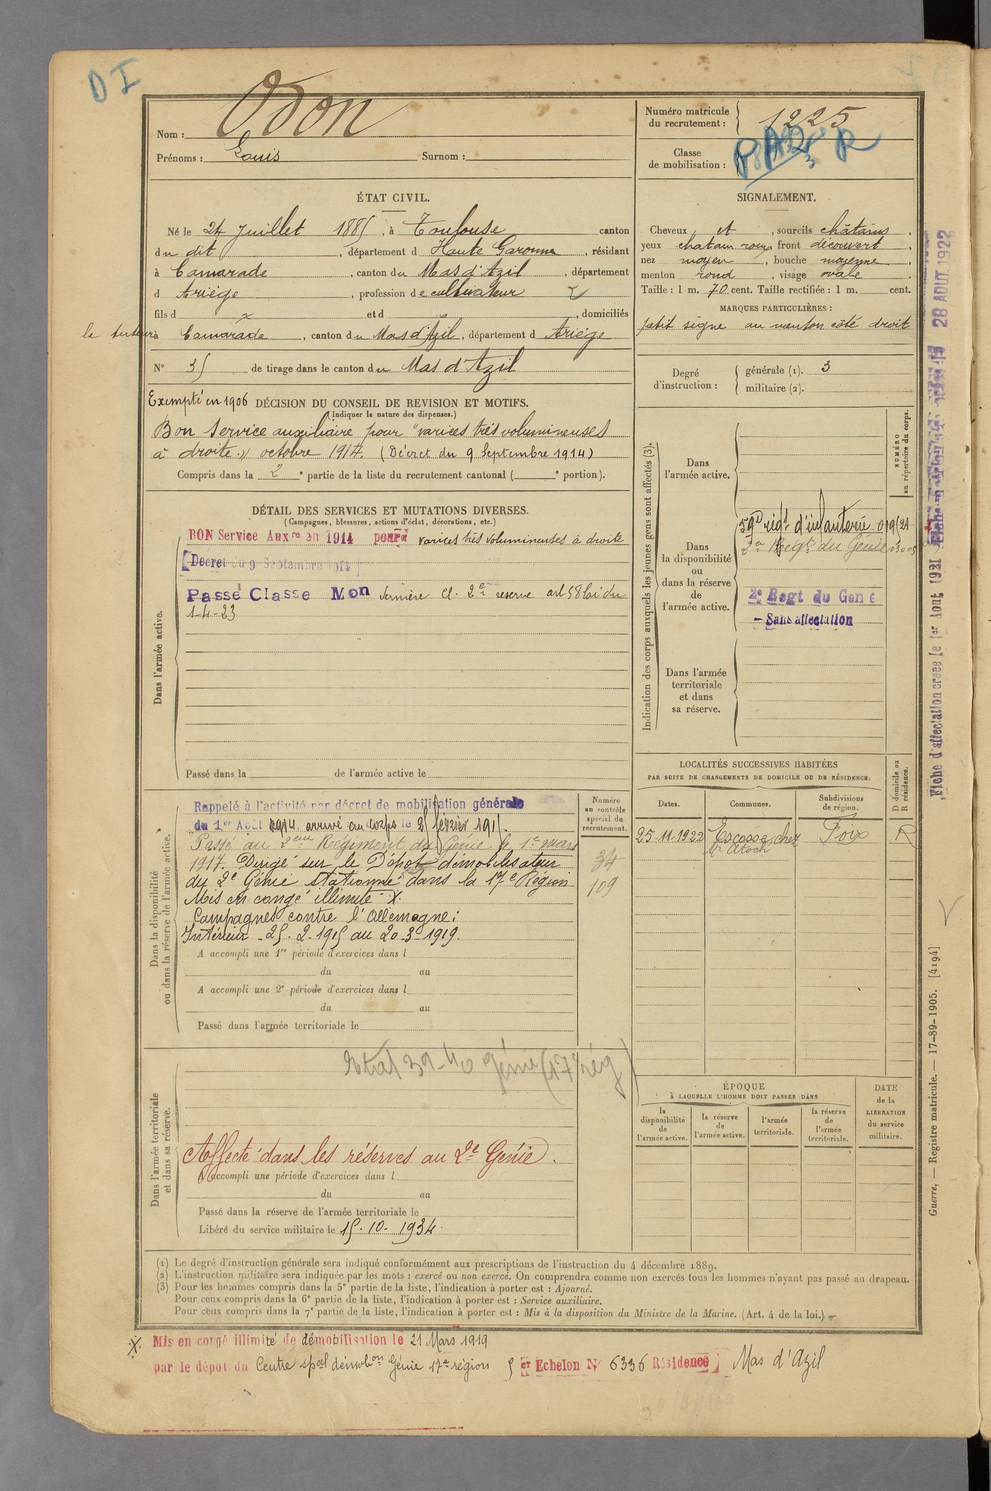 D I
Nom : Odon
Prénoms : Louis Surnom :
Numéro matricule
du recrutement : 1225
Classe
de mobilisation :
ÉTAT CIVIL.
Né le 24 Juillet 1885, à Toulouse canton
du dit, département d Haute Garonne, résidant
à Camarade, canton du Mas d'Azil, département
d Ariège, profession de cultivateur
fils d et d , domiciliés
le tuteur à Camarade, canton du Mas d'Azil, département d Ariège
N° 35 de tirage dans le canton du Mas d'Azil
SIGNALEMENT.
Cheveux et , sourcils châtains
yeux chatain roux front découvert
nez moyen, bouche moyenne
menton rond, visage ovale
Taille : 1 m. 70 cent. Taille rectifiée : 1 m. cent.
MARQUES PARTICULIÈRES :
petit signe au menton côté droit
Degré
d'instruction :
générale (1). 3
militaire (2).
Exempté en 1906 DÉCISION DU CONSEIL DE REVISION ET MOTIFS.
(Indiquer la nature des dispenses.)
Bon Service auxiliaire pour "varices très volumineuses
à droite" octobre 1914. (Décret du 9 Septembre 1914)
Compris dans la 2e partie de la liste du recrutement cantonal ( e portion).
DÉTAIL DES SERVICES ET MUTATIONS DIVERSES.
(Campagnes, blessures, actions d'éclat, décorations, etc.)
Dans l'armée active.
BON Service Auxre en 1914 pour varices très volumineuses à droite
Décret du 9 Septembre 1914
Passé Classe Mon dernière cl. 2e réserve art 58 loi du
1-4-23
Passé dans la de l'armée active le
Indication des corps auxquels les jeunes gens sont affectés (3).
NUMÉRO
au répertoire du corps.
Dans
l'armée active.
Dans
la disponibilité
ou
dans la réserve
de
l'armée active.
59e régt d'infanterie
2e Régt du Génie
2e Regt du Genie
- Sans affectation
Dans l'armée
territoriale
et dans
sa réserve.
Fiche d'affectation créée le 1er Août 1921
28 AOUT 1922
LOCALITÉS SUCCESSIVES HABITÉES
PAR SUITE DE CHANGEMENTS DE DOMICILE OU DE RÉSIDENCE.
D domicile ou
R résidence.
Dates. Communes. Subdivisions
de région.
25-11-1922 Escosse chez Foix R
Dans la disponibilité
ou dans la réserve de l'armée active.
Numéro
au contrôle
spécial du
recrutement.
Rappelé à l'activité par décret de mobilisation générale
du 1er Août 1914, arrivé au corps le 25 février 1915.
Passé au 2ème Régiment du Génie le 1er mars
1917. Dirigé sur le Dépôt démobilisateur
du 2e Génie stationné dans la 17e Région
Mis en congé illimité X.
Campagnes contre l'Allemagne :
Intérieur - 25-2-1915 au 20-3-1919.
34
109
A accompli une 1re période d'exercices dans l
du au
A accompli une 2e période d'exercices dans l
du au
Passé dans l'armée territoriale le
Dans l'armée territoriale
et dans sa réserve.
génie (17 rég)
Affecté dans les réserves au 2e Génie.
A accompli une période d'exercices dans l
du au
Passé dans la réserve de l'armée territoriale le
Libéré du service militaire le 15-10-1934
ÉPOQUE
À LAQUELLE L'HOMME DOIT PASSER DANS
la
disponibilité
de
l'armée active.
la réserve
de
l'armée active.
l'armée
territoriale.
la réserve
de
l'armée
territoriale.
DATE
de la
LIBÉRATION
du service
militaire.
Guerre. — Registre matricule. — 17-89-1905. [4194]
(1) Le degré d'instruction générale sera indiqué conformément aux prescriptions de l'instruction du 4 décembre 1889.
(2) L'instruction militaire sera indiquée par les mots : exercé ou non exercé. On comprendra comme non exercés tous les hommes n'ayant pas passé au drapeau.
(3) Pour les hommes compris dans la 5e partie de la liste, l'indication à porter est : Ajourné.
Pour ceux compris dans la 6e partie de la liste, l'indication à porter est : Service auxiliaire.
Pour ceux compris dans la 7e partie de la liste, l'indication à porter est : Mis à la disposition du Ministre de la Marine. (Art. 4 de la loi.)
X. Mis en congé illimité de démobilisation le 21 Mars 1919
par le dépôt du Centre spécl démobon Génie 17e région 5 er Echelon N° 6336 Résidence Mas d'Azil